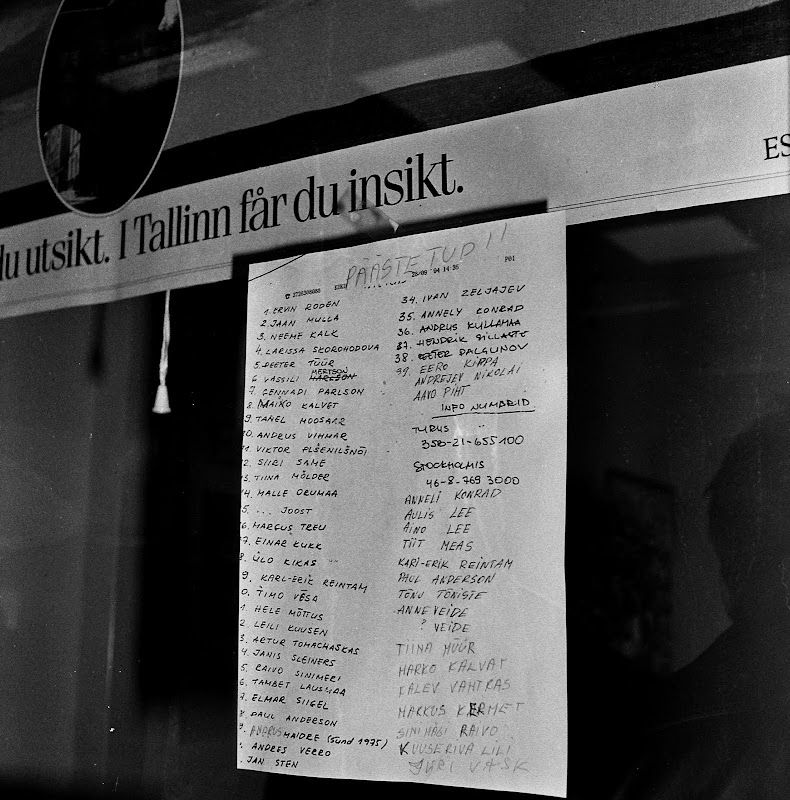 du utsikt. I Tallinn får du insikt.
ES
PÄÄSTETUD !!
28/09 '94 14:36
P01
1. ERVIN RODEN
2. JAAN MULLA
3. NEEME KALK
4. LARISSA SKOROHODOVA
5. PEETER TÜÜR
6. VASSILI MERTSON
7. GENNADI PARLSON
8. MAIKO KALVET
9. TANEL MOOSAAR
10. ANDRUS VIHMAR
11. VIKTOR
12. SIIRI SAME
13. TIINA MÖLDER
14. MALLE ORUMAA
5. ... JOOST
6. MARGUS TREU
7. EINAR KUKK
8. ÜLO KIKAS
9. KARL-ERIK REINTAM
0. TIMO VÕSA
1. HELE MÕTTUS
2. LEILI KUUSEN
3. ARTUR TOMACHASKAS
4. JANIS SLEINERS
5. RAIVO SINIMERI
6. TAMBET LAUSMAA
7. ELMAR SIIGEL
8. PAUL ANDERSON
9. ANDRUS MAIDRE (sünd 1975)
ANDRES VERRO
JAN STEN
34. IVAN ZELJAJEV
35. ANNELY KONRAD
36. ANDRUS KULLAMAA
37. HENDRIK SILLASTE
38. PEETER PALGUNOV
39. EERO KIPPA
ANDREJEV NIKOLAI
AAVO PIHT
INFO NUMBRID
TURUS
358-21-655100
STOCKHOLMIS
46-8-769 3000
ANNELI KONRAD
AULIS LEE
AINO LEE
TIIT MEAS
KARL-ERIK REINTAM
PAUL ANDERSON
TÕNU TÕNISTE
ANNE VEIDE
? VEIDE
TIINA MÜÜR
MARKO KALVAT
KALEV VAHTRAS
MARKUS KERMET
SINIMÄGI RAIVO
KUUSERIVA LILI
JÜRI VASK